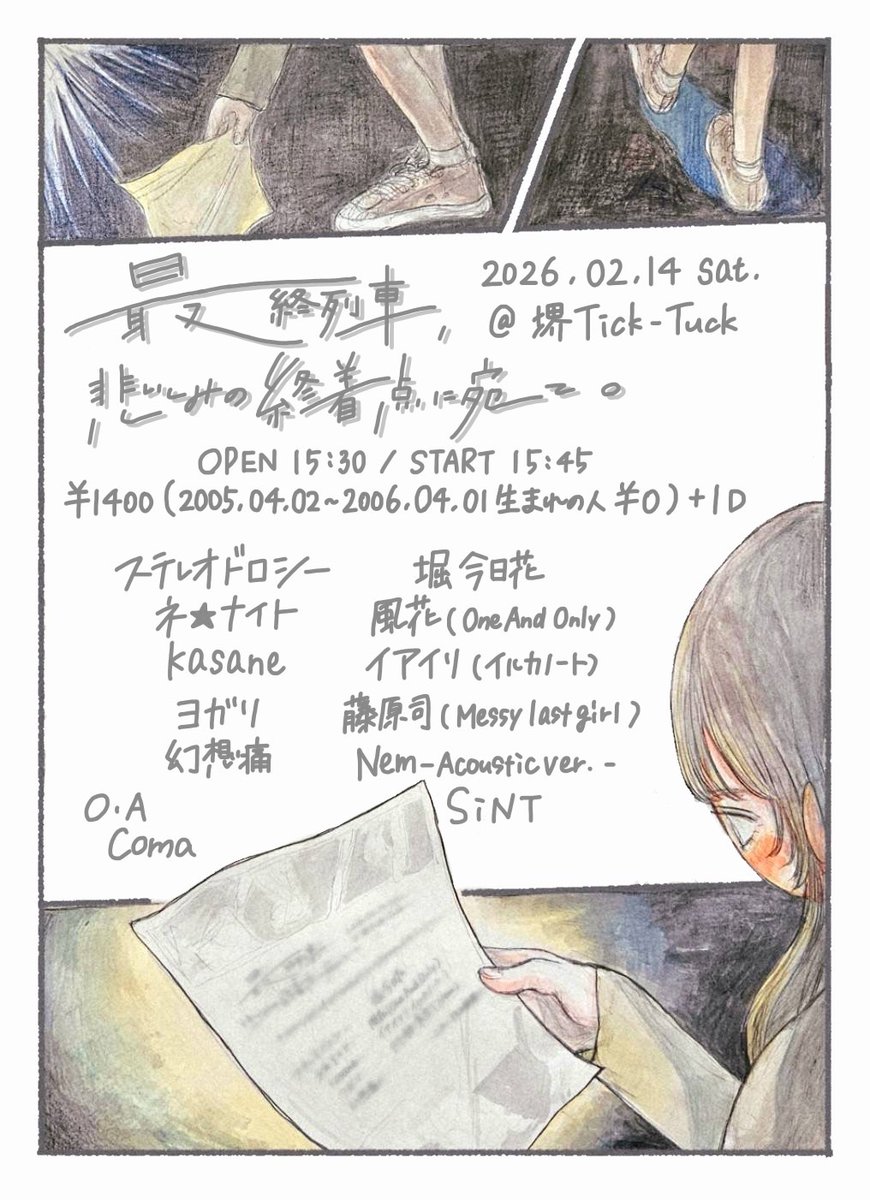 最終列車、
悲しみの終着点に宛て。
2026.02.14 sat.
@堺Tick-Tuck
OPEN 15:30 / START 15:45
¥1400(2005.04.02~2006.04.01生まれの人 ¥0)+1D
ステレオドロシー
ネ★ナイト
kasane
ヨガリ
幻想痛
O.A
Coma
堀 今日花
風花(One And Only)
イアイリ(イルカノート)
藤原司(Messy last girl)
Nem-Acoustic ver.-
SiNT